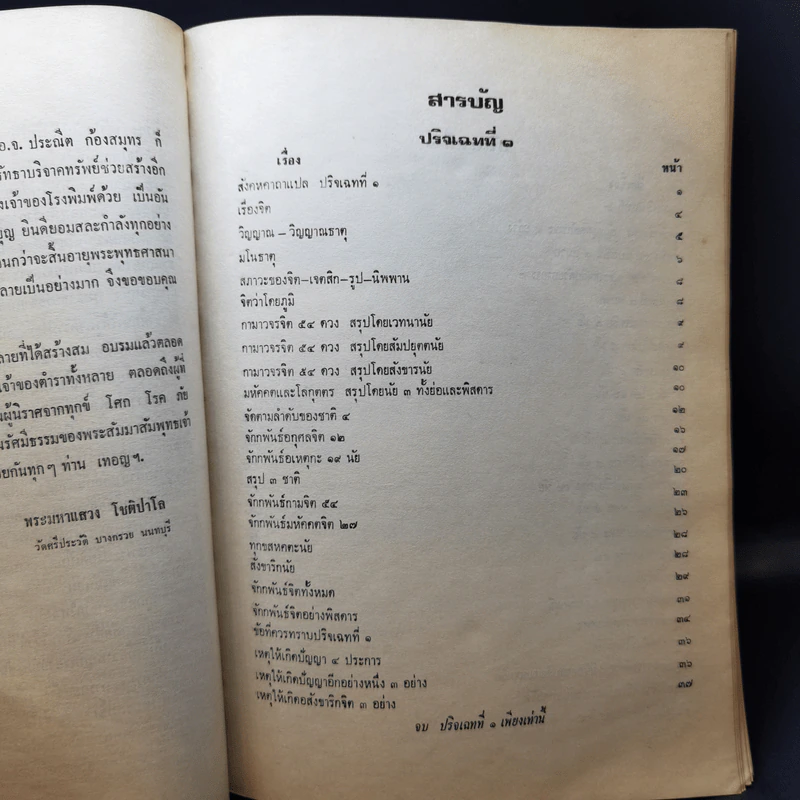 อ.จ. ประณีต ก้องสมุทร ก็
รัทธาบริจาคทรัพย์ช่วยสร้างอีก
งเจ้าของโรงพิมพ์ด้วย เป็นอัน
บุญ ยินดียอมสละกำลังทุกอย่าง
นกว่าจะสิ้นอายุพระพุทธศาสนา
ลายเป็นอย่างมาก จึงขอขอบคุณ
ลายที่ได้สร้างสม อบรมแล้วตลอด
เจ้าของตำราทั้งหลาย ตลอดถึงผู้ที่
นผู้นิราศจากทุกข์ โศก โรค ภัย
นรัศมีธรรมของพระสัมมาสัมพุทธเจ้า
ยกันทุกๆ ท่าน เทอญฯ.
พระมหาแสวง โชติปาโล
วัดศรีประวัติ บางกรวย นนทบุรี
สารบัญ
ปริจเฉทที่ ๑
เรื่อง หน้า
สังคหคาถาแปล ปริจเฉทที่ ๑ ๑
เรื่องจิต ๔
วิญญาณ – วิญญาณธาตุ ๕
มโนธาตุ ๖
สภาวะของจิต–เจตสิก–รูป–นิพพาน ๘
จิตว่าโดยภูมิ ๘
กามาวจรจิต ๕๔ ดวง สรุปโดยเวทนานัย ๙
กามาวจรจิต ๕๔ ดวง สรุปโดยสัมปยุตตนัย ๙
กามาวจรจิต ๕๔ ดวง สรุปโดยสังขารนัย ๑๐
มหัคคตและโลกุตตร สรุปโดยนัย ๓ ทั้งย่อและพิสดาร ๑๐
จัดตามลำดับของชาติ ๔ ๑๒
จักกพันธ์อกุศลจิต ๑๒ ๑๖
จักกพันธ์อเหตุกะ ๑๙ นัย ๑๗
สรุป ๓ ชาติ ๒๐
จักกพันธ์กามจิต ๕๔ ๒๓
จักกพันธ์มหัคคตจิต ๒๗ ๒๖
ทุกขสหคตะนัย ๒๘
สังขาริกนัย ๒๘
จักกพันธ์จิตทั้งหมด ๒๙
จักกพันธ์จิตอย่างพิสดาร ๓๑
ข้อที่ควรทราบปริจเฉทที่ ๑ ๓๔
เหตุให้เกิดปัญญา ๔ ประการ ๓๖
เหตุให้เกิดปัญญาอีกอย่างหนึ่ง ๓ อย่าง ๓๖
เหตุให้เกิดอสังขาริกจิต ๓ อย่าง ๓๗
จบ ปริจเฉทที่ ๑ เพียงเท่านี้